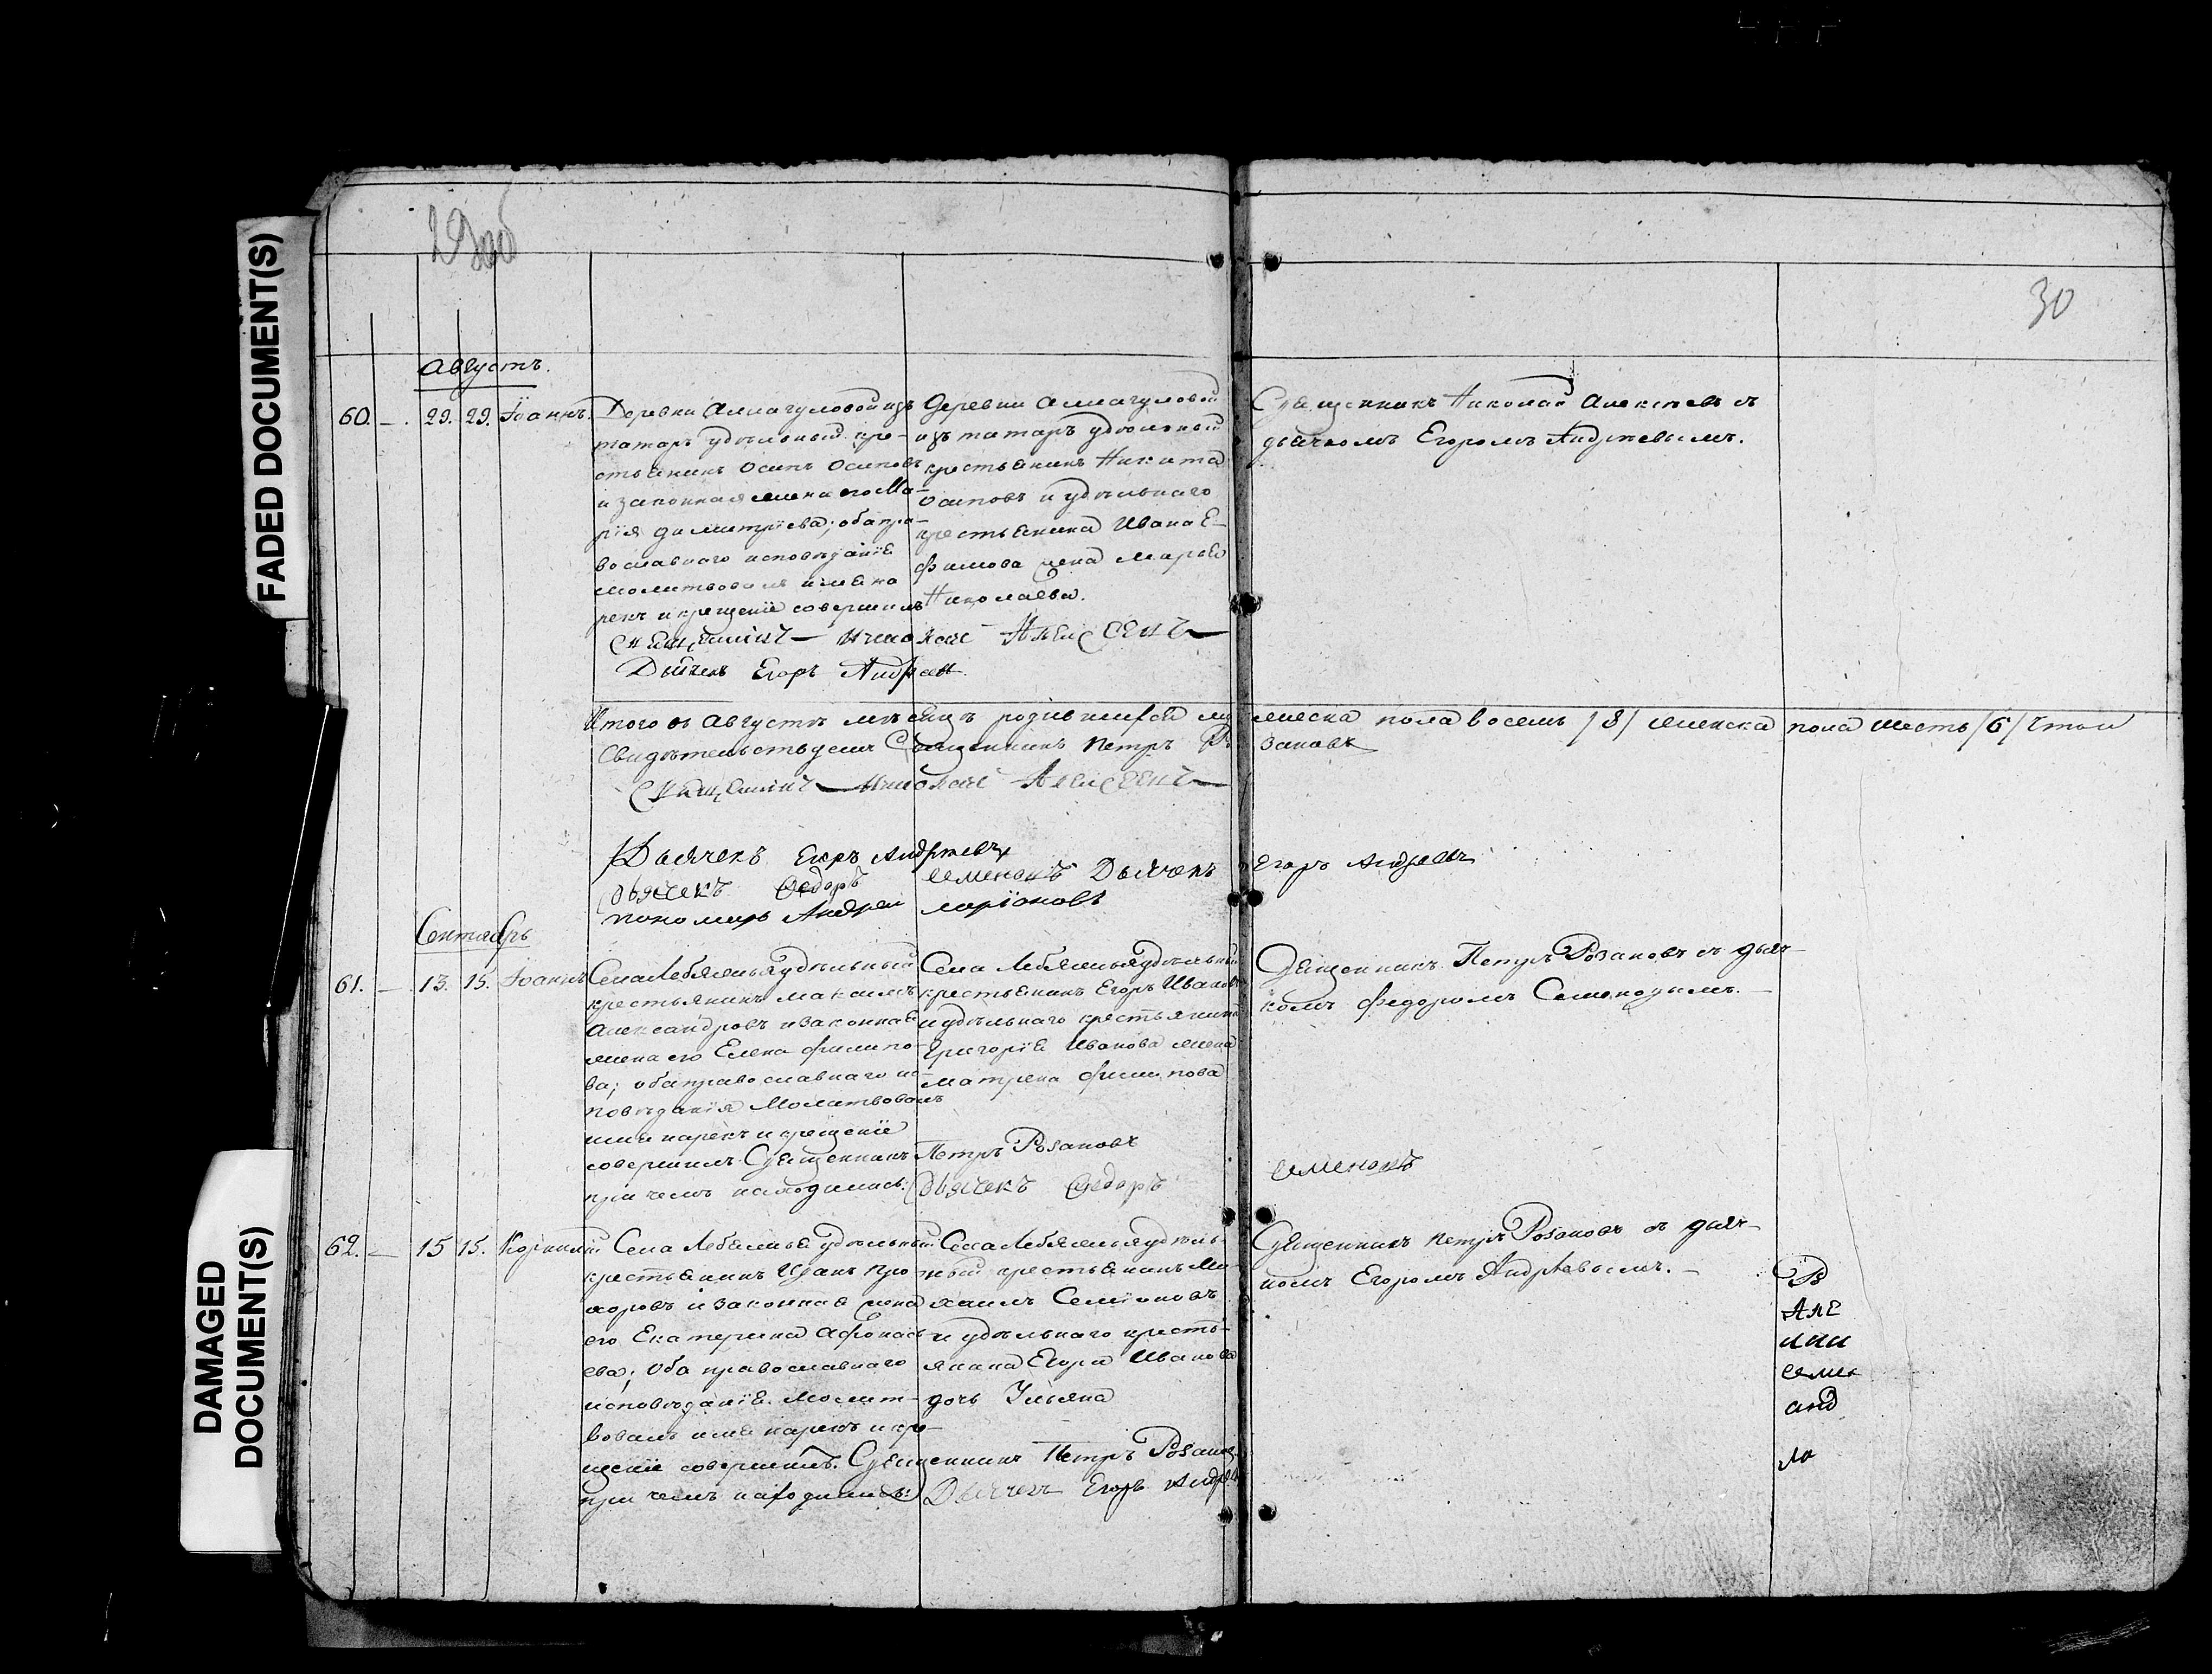 FADED DOCUMENT(S)
DAMAGED DOCUMENT(S)
29 об
30
Августъ.
60. — 29. 29. Іоаннъ.
Деревни Алмагуловой изъ
татаръ удѣльный кре-
стьянинъ Осипъ Осиповъ
и законная жена его Ма-
рія Димитріева; оба пра-
вославнаго исповѣданія
молитвовалъ имя на
рекъ и крещеніе совершилъ
Деревни Алмагуловой
изъ татаръ удѣльный
крестьянинъ Никита
Осиповъ и удѣльнаго
крестьянина Ивана Е-
фимова жена Марья
Николаева.
Священникъ Николай Алексѣевъ съ
дьячкомъ Егоромъ Андрѣевымъ.
Священникъ Николай Алексеевъ
Дьячекъ Егоръ Андреевъ
Итого въ Августѣ мѣсяцѣ родившихся му жеска пола восемь /8/ женска пола шесть /6/ въ томъ
Свидѣтельствуемъ Священникъ Петръ Розановъ
Священникъ Николай Алексеевъ
Дьячекъ Егоръ Андрѣевъ
Дьячекъ Федоръ Семеновъ Дьячекъ Егоръ Андреевъ
пономарь Андрей Ларіоновъ
Сентябрь
61. — 13. 15. Іоаннъ
Села Лебяжья удѣльный
крестьянинъ Максимъ
Александровъ и законная
жена его Елена Филипо-
ва; оба православнаго ис-
повѣданія Молитвовалъ
имя нарекъ и крещеніе
совершилъ Священникъ Петръ Розановъ
при чемъ находились: Дьячекъ Федоръ Семеновъ
Села Лебяжья удѣльный
крестьянинъ Егоръ Ивановъ
и удѣльнаго крестьянина
Григорія Иванова жена
Матрена Филипова
Священникъ Петръ Розановъ съ дьяч-
комъ Федоромъ Семеновымъ. —
62. — 15 15. Корнилій
Села Лебяжья удѣльный
крестьянинъ Иванъ Про
хоровъ и законная жена
его Екатерина Афонась
ева; Оба православнаго
исповѣданія. Молит-
вовалъ имя нарекъ и кре-
щеніе совершилъ. Священникъ Петръ Розановъ
при чемъ находились: Дьячекъ Егоръ Андре
Села Лебяжья удѣль-
ный крестьянинъ Ми-
хаилъ Семіоновъ
и удѣльнаго кресть-
янина Егора Иванова
дочь Ульяна
Священникъ Петръ Розановъ съ дьяч-
комъ Егоромъ Андрѣевымъ. —
Але
семе
анд
ла